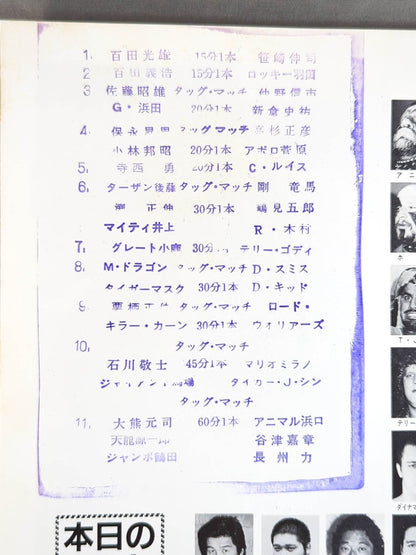 1, 百田光雄 15分1本 笹崎伸司
2 百田義浩 15分1本 ロッキー羽田
3 佐藤昭雄 タッグ・マッチ 仲野信市
G・浜田 20分1本 新倉史祐
4 保永昇男 タッグマッチ 高杉正彦
小林邦昭 20分1本 アポロ菅原
5, 寺西 勇 20分1本 C・ルイス
6, ターザン後藤 タッグ・マッチ 剛 竜馬
渕 正伸 30分1本 鶴見五郎
マイティ井上 R・木村
7, グレート小鹿 30分1本 テリー・ゴディ
8, M・ドラゴン タッグ・マッチ D・スミス
タイガーマスク 30分1本 D・キッド
9, 栗栖正伸 タッグ・マッチ ロード・
キラー・カーン 30分1本 ウォリアーズ
10, タッグ・マッチ
石川敬士 45分1本 マリオミラノ
ジャイアント馬場 タイガー・J・シン
タッグ・マッチ
11, 大熊元司 60分1本 アニマル浜口
天龍源一郎 谷津嘉章
ジャンボ鶴田 長州 力
本日の
アニ
ホ
T・J
テリー
ダイナマ